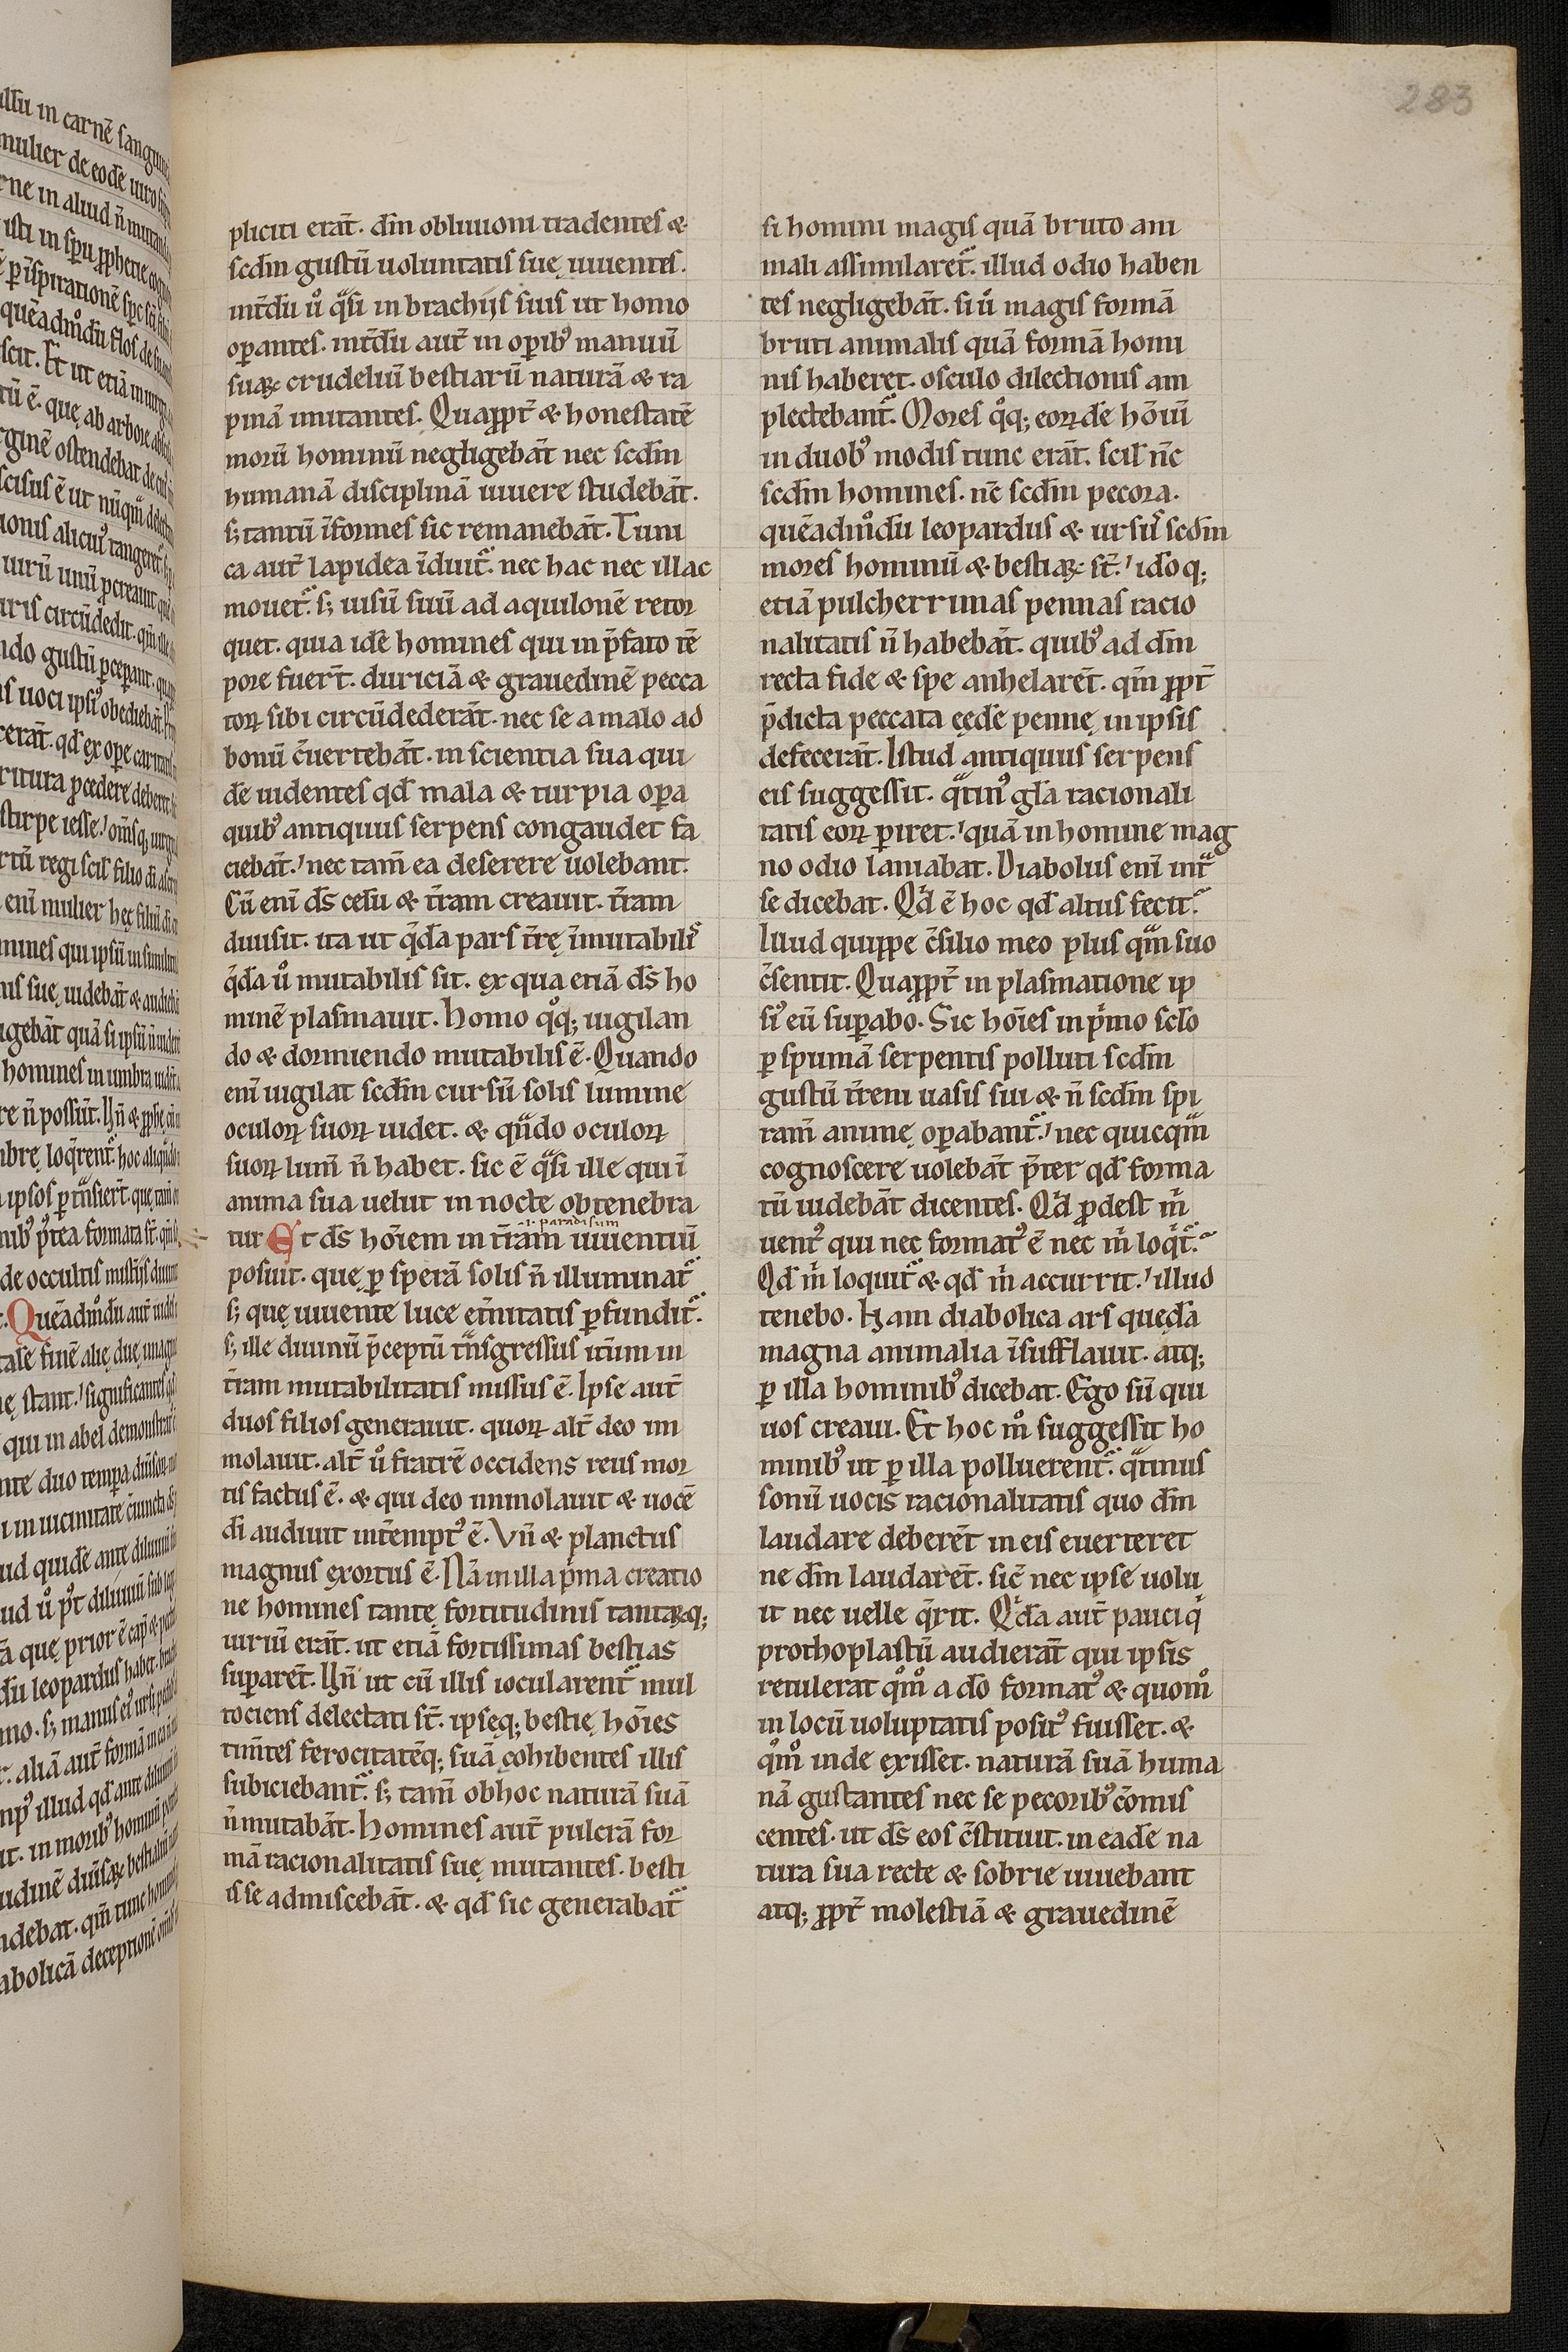 283
pliciti erāt. dm̄ obliuioni tradentes &
scdm̄ gustū uoluntatis suę uiuentes.
int̄dū ů q̊si in brachijs suis ut homo
oꝑantes. int̄dū aut̄ in oꝑibꝰ manuū
suaꝝ crudeliū bestiarū naturā & ra
pinā imitantes. Quaꝓpt̄ & honestatē
morū hominū negligebāt nec scdm̄
humanā disciplinā uiuere studebāt.
s; tantū īformes sic remanebāt. Tuni
ca aut̄ lapidea īduit᷑. nec hac nec illac
mouet᷑. s; uisū suū ad aquilonē retor
quet. quia idē homines qui in p̄fato tē
pore fuer̄t. duriciā & grauedinē pecca
toꝝ sibi circūdederāt. nec se a malo ad
bonū c̄uertebāt. in scientia sua qui
dē uidentes qd̄ mala & turpia oꝑa
quibꝰ antiquus serpens congaudet fa
ciebāt. nec tam̄ ea deserere uolebant.
Cū enī ds̄ celū & t̄ram creauit. t̄ram
diuisit. ita ut q̄dā pars t̄rę īmutabilis
q̄dā ů mutabilis sit. ex qua etiā ds̄ ho
minē plasmauit. Homo q̊q; uigilan
do & dormiendo mutabilis ē. Quando
enī uigilat scdm̄ cursū solis lumine
oculoꝝ suoꝝ uidet. & qn̄do oculoꝝ
suoꝝ lum̄ n̄ habet. sic ē q̊si ille qui ī
anima sua uelut in nocte obtenebra
.i. paradisum
tur Et ds̄ hoīem in t̄ram uiuentiū
posuit. que ꝑ sperā solis n̄ illuminat᷑
s; que uiuente luce et̄nitatis ꝑfundit᷑.
s; ille diuinū p̄ceptū tn̄sgressus it̄um in
t̄ram mutabilitatis missus ē. Ipse aut̄
duos filios generauit. quoꝝ alt̄ deo im
molauit. alt̄ ů fratrē occidens reus mor
tis factus ē. & qui deo immolauit & uocē
dī audiuit int̄emptꝰ ē. Vn̄ & planctus
magnus exortus ē. Nā in illa p̄ma creatio
ne homines tantę fortitudinis tantaꝝq;
uiriū erāt. ut etiā fortissimas bestias
suꝑarēt. Un̄ ut cū illis iocularent᷑ mul
tociens delectati st̄. ipseq; bestię hoīes
tim̄tes ferocitatēq; suā cohibentes illis
subiciebant᷑. s; tam̄ ob hoc naturā suā
n̄ mutabāt. Homines aut̄ pulcrā for
mā racionalitatis suę mutantes. besti
is se admiscebāt. & qd̄ sic generabat᷑
si homini magis quā bruto ani
mali assimilaret᷑. illud odio haben
tes negligebāt. si ů magis formā
bruti animalis quā formā homi
nis haberet. osculo dilectionis am
plectebant᷑. Mores q̊q; eoꝝdē hoīuū
in duobꝰ modis tunc erāt. scil̄ nc̄
scdm̄ homines. nc̄ scdm̄ pecora.
quēadm̊dū leopardus & ursus̄ scdm̄
mores hominū & bestiaꝝ st̄. id̄oq;
etiā pulcherrimas pennas racio
nalitatis n̄ habebāt. quibꝰ ad dm̄
recta fide & spe anhelarēt. qm̄ ꝓpt̄
p̄dicta peccata eędē pennę in ipsis
defecerāt. Istud antiquus serpens
eis suggessit. q̊tin̄ꝰ gl̄a racionali
tatis eoꝝ ꝑiret. quā in homine mag
no odio laniabat. Diabolus enī int̄
se dicebat. Qd̄ ē hoc qd̄ altus fecit?
Illud quippe c̄silio meo plus qm̄ suo
c̄sentit. Quaꝓpt̄ in plasmatione ip
siꝰ eū suꝑabo. Sic hoīes in p̄mo sclo̅
ꝑ spumā serpentis polluti scdm̄
gustū t̄reni uasis sui & n̄ scdm̄ spi
ram̄ animę oꝑabant᷑. nec quicqm̄
cognoscere uolebāt p̄ter qd̄ forma
tū uidebāt dicentes. Qd̄ ꝓdest m̓
uentꝰ qui nec formatꝰ ē nec m̓ loq̓t᷑?
Qd̄ m̓ loquit᷑ & qd̄ m̓ accurrit. illud
tenebo. Nam diabolica ars quędā
magna animalia īsufflauit. atq;
ꝑ illa hominibꝰ dicebat. Ego sū qui
uos creaui. Et hoc m̊ suggessit ho
minibꝰ ut ꝑ illa polluerent᷑. q̊tinus
sonū uocis racionalitatis quo dm̄
laudare deberēt in eis euerteret
ne dm̄ laudarēt. sic̄ nec ipse uolu
it nec uelle q̄rit. Q̓dā aut̄ pauci q̓
prothoplastū audierāt qui ipsis
retulerat q̊m̊ a dō formatꝰ & quom̊
in locū uoluptatis positꝰ fuisset. &
q̊m̊ inde exisset. naturā suā huma
nā gustantes nec se pecoribꝰ c̄omis
centes. ut ds̄ eos c̄stituit. in eadē na
tura sua recte & sobrie uiuebant
atq; ꝓpt̄ molestiā & grauedinē